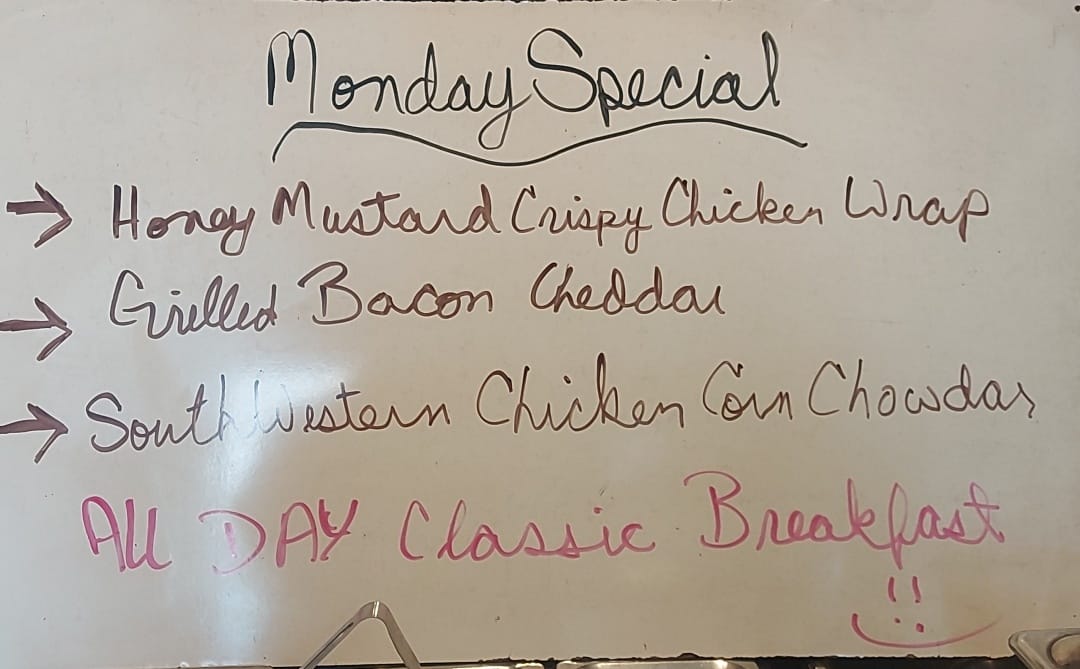 Monday Special
→ Honey Mustard Crispy Chicken Wrap
→ Grilled Bacon Cheddar
→ South Western Chicken Corn Chowdar
All DAY Classic Breakfast